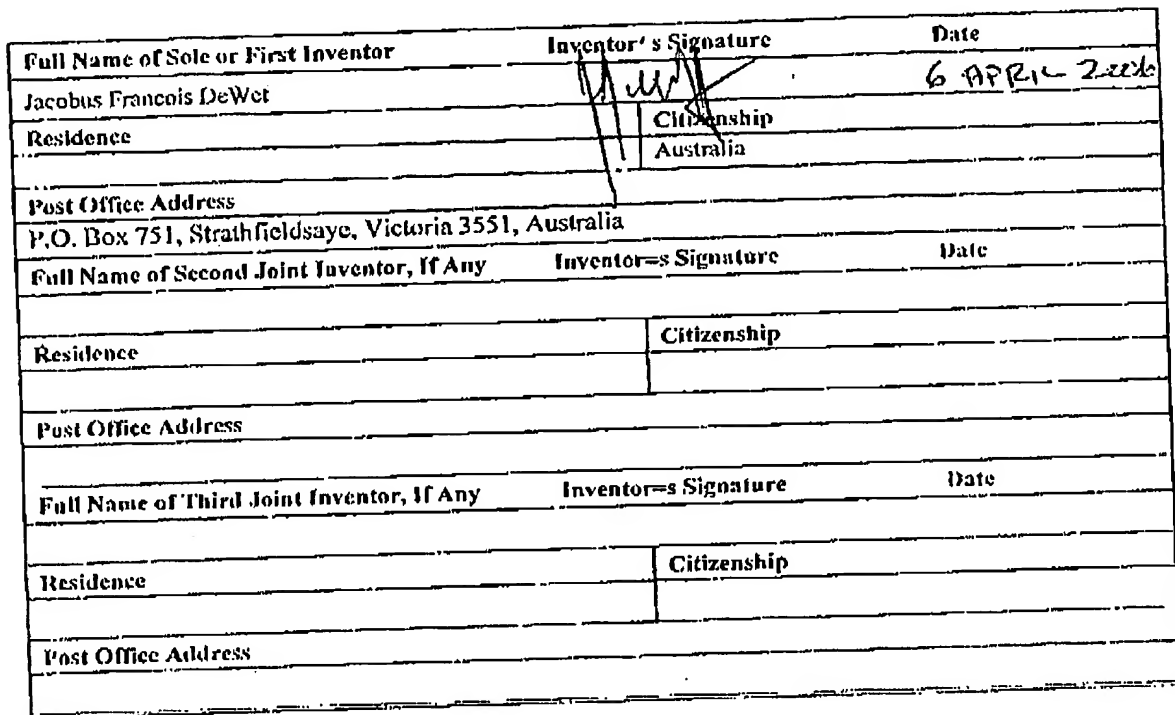 Full Name of Sole or First Inventor Inventor's Signature Date
Jacobus Francois DeWet 6 APRIL
Residence Citizenship
Australia
Post Office Address
P.O. Box 751, Strathfieldsaye, Victoria 3551, Australia
Full Name of Second Joint Inventor, If Any Inventor=s Signature Date
Residence Citizenship
Post Office Address
Full Name of Third Joint Inventor, If Any Inventor=s Signature Date
Residence Citizenship
Post Office Address